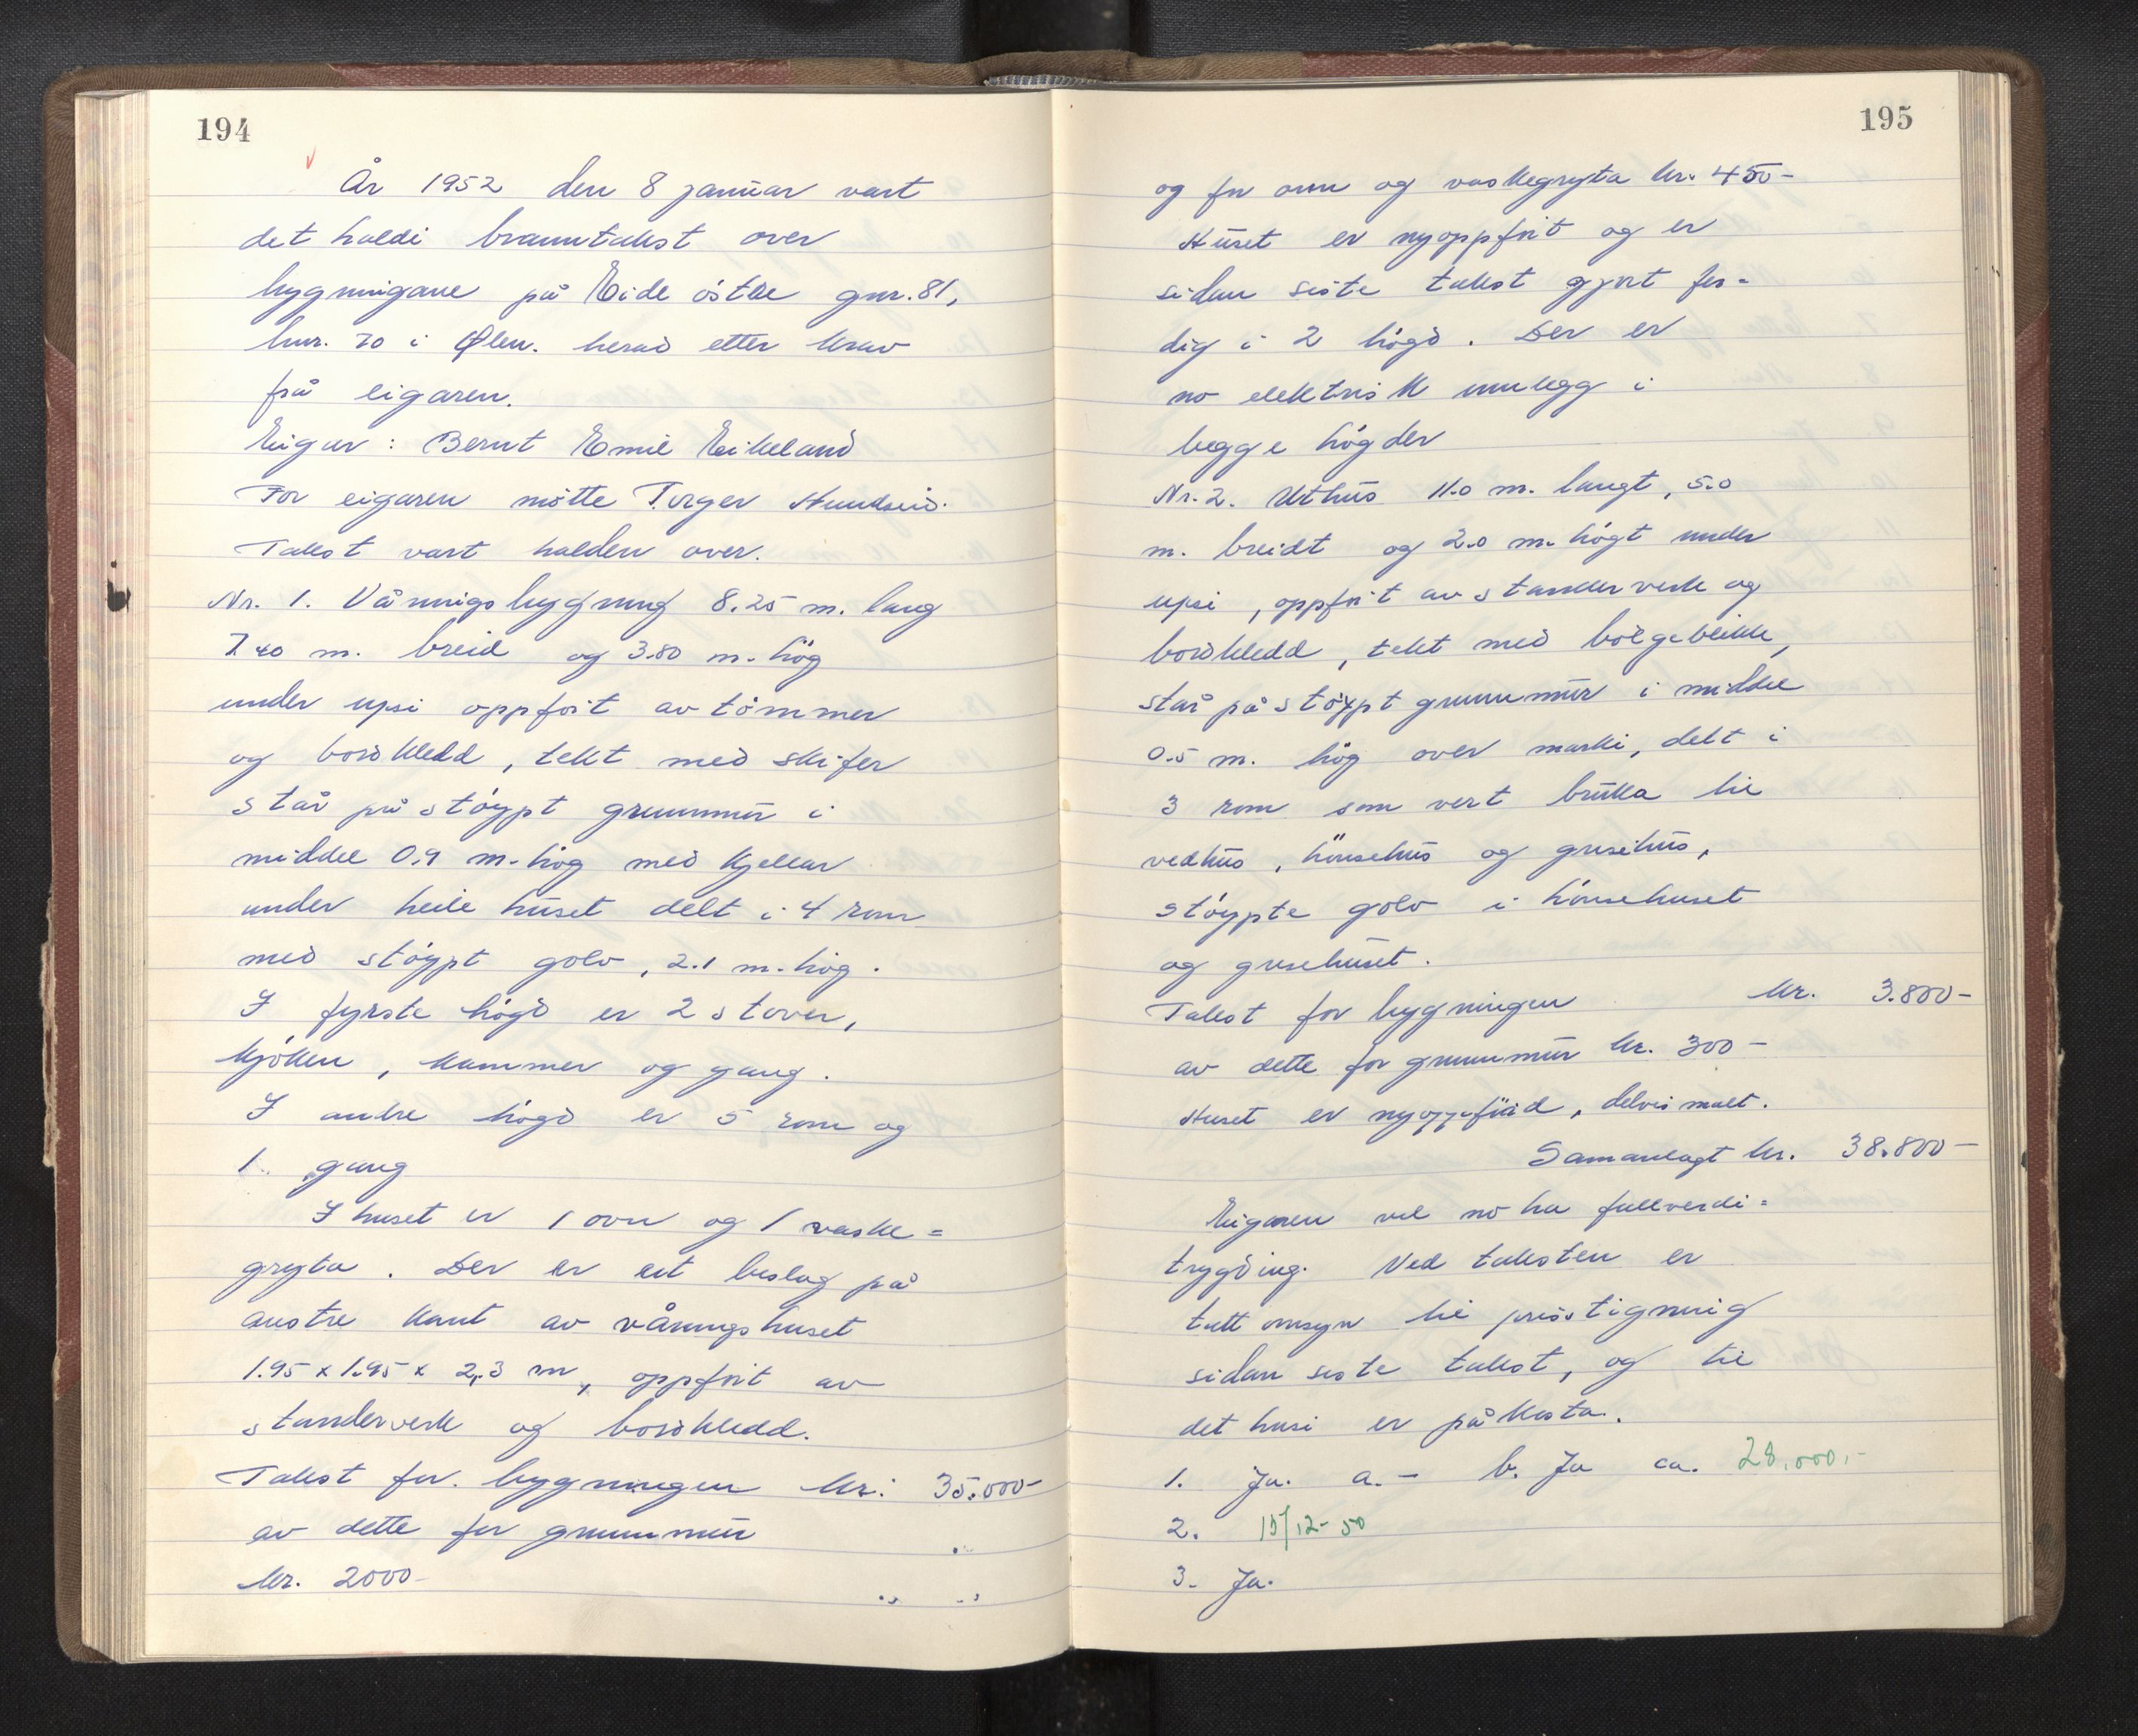 194
År 1952 den 8 januar vart
det haldi branntakst over
bygningane på Eide östre gnr. 81,
bnr. 70 i Ølen. herad etter krav
frå eigaren.
Eigar : Bernt Emil Eikeland
For eigaren mötte Torger Hundseid.
Takst vart halden over.
Nr. 1. Våningsbygning 8.25 m. lang
7.40 m. breid og 3.80 m. hög
under upsi oppfört av tömmer
og bordkledd, tekt med skifer
står på stöypt grunnmur i
middel 0.9 m. hög med kjellar
under heile huset delt i 4 rom
med stöypt golv, 2.1 m. hög.
I fyrste högd er 2 stover,
kjöken, kammer og gang.
I andre högd er 5 rom og
1. gang
I huset er 1 ovn og 1 vaske=
gryta. Der er eit beslag på
austre kant av våningshuset
1.95 x 1.95 x 2,3 m, oppfört av
standerverk og bordkledd.
Takst for. bygningen kr: 35.000-
av dette for grunnmur
kr. 2000-
195
og for ovn og vaskegryta kr. 450-
Huset er nyoppfört og er
sidan siste takst gjort fer=
dig i 2 högd. Der er
no elektrisk innlegg i
begge högder
Nr. 2. Uthus 11.0 m. langt, 5.0
m. breidt og 2.0 m. högt under
upsi, oppfört av standerverk og
bordkledd, tekt med bölgeblikk,
står på stöypt grunnmur i middel
0.5 m. hög over marki, delt i
3 rom som vert bruka til
vedhus, hönsehus og grisehus,
stöypte golv i hönsehuset
og grisehuset.
Takst for bygningen kr. 3.800-
av dette for grunnmur kr. 300-
Huset er nyoppförd, delvis malt.
Samanlagt kr. 38.800-
Eigaren vil no ha fullverdi=
trygding. Ved taksten er
tatt omsyn til prisstigning
sidan siste takst, og til
det husi er påkosta.
1. Ja. a. - b. Ja ca. 28.000,-
2. 15/12-50
3. Ja.